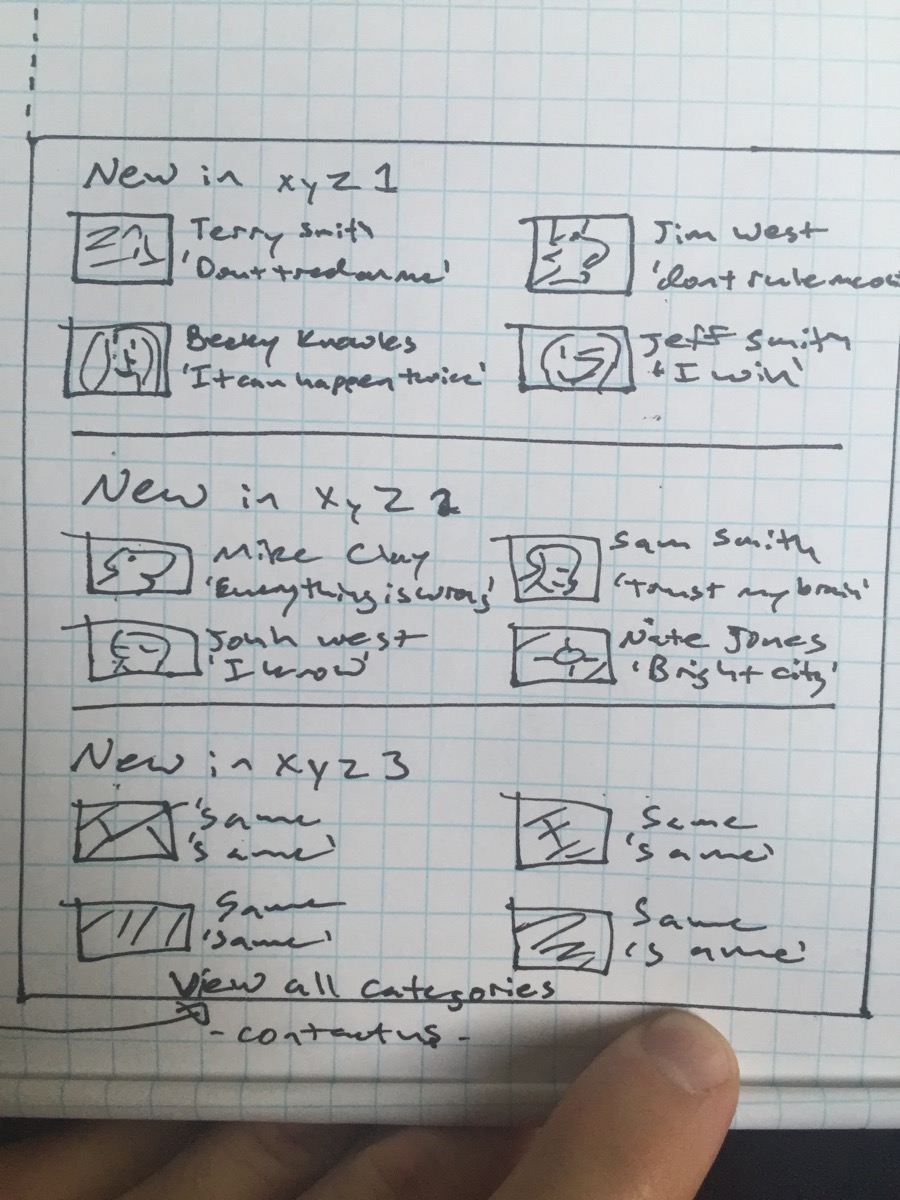 New in xyz 1
Terry Smith
'Dont tred on me'
Jim West
'dont rule me
Becky Knowles
'It can happen twice'
Jeff Smith
'I win'
New in xyz 2
Mike Clay
'Everything is wrong'
Sam Smith
'Trust my brain'
Jonh west
'I know'
Nate Jones
'Bright city'
New in xyz 3
'Same
'same'
Same
'same'
Same
'same'
Same
'same'
View all categories
- contact us -